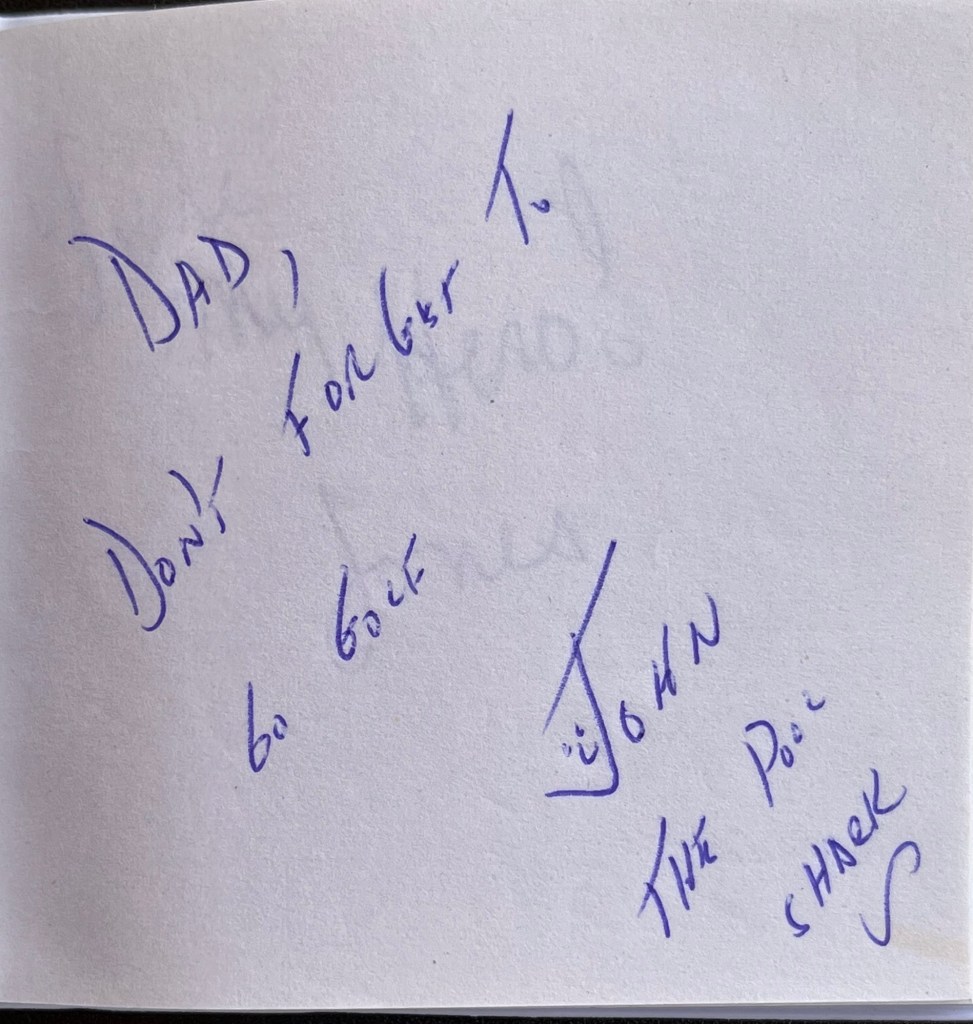 DAD,
DON'T FORGET TO
GO GOLF
JOHN
THE POOL
SHARK